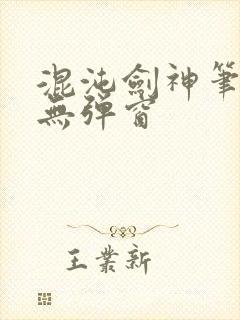 混沌劍神筆
無彈窗
王業新